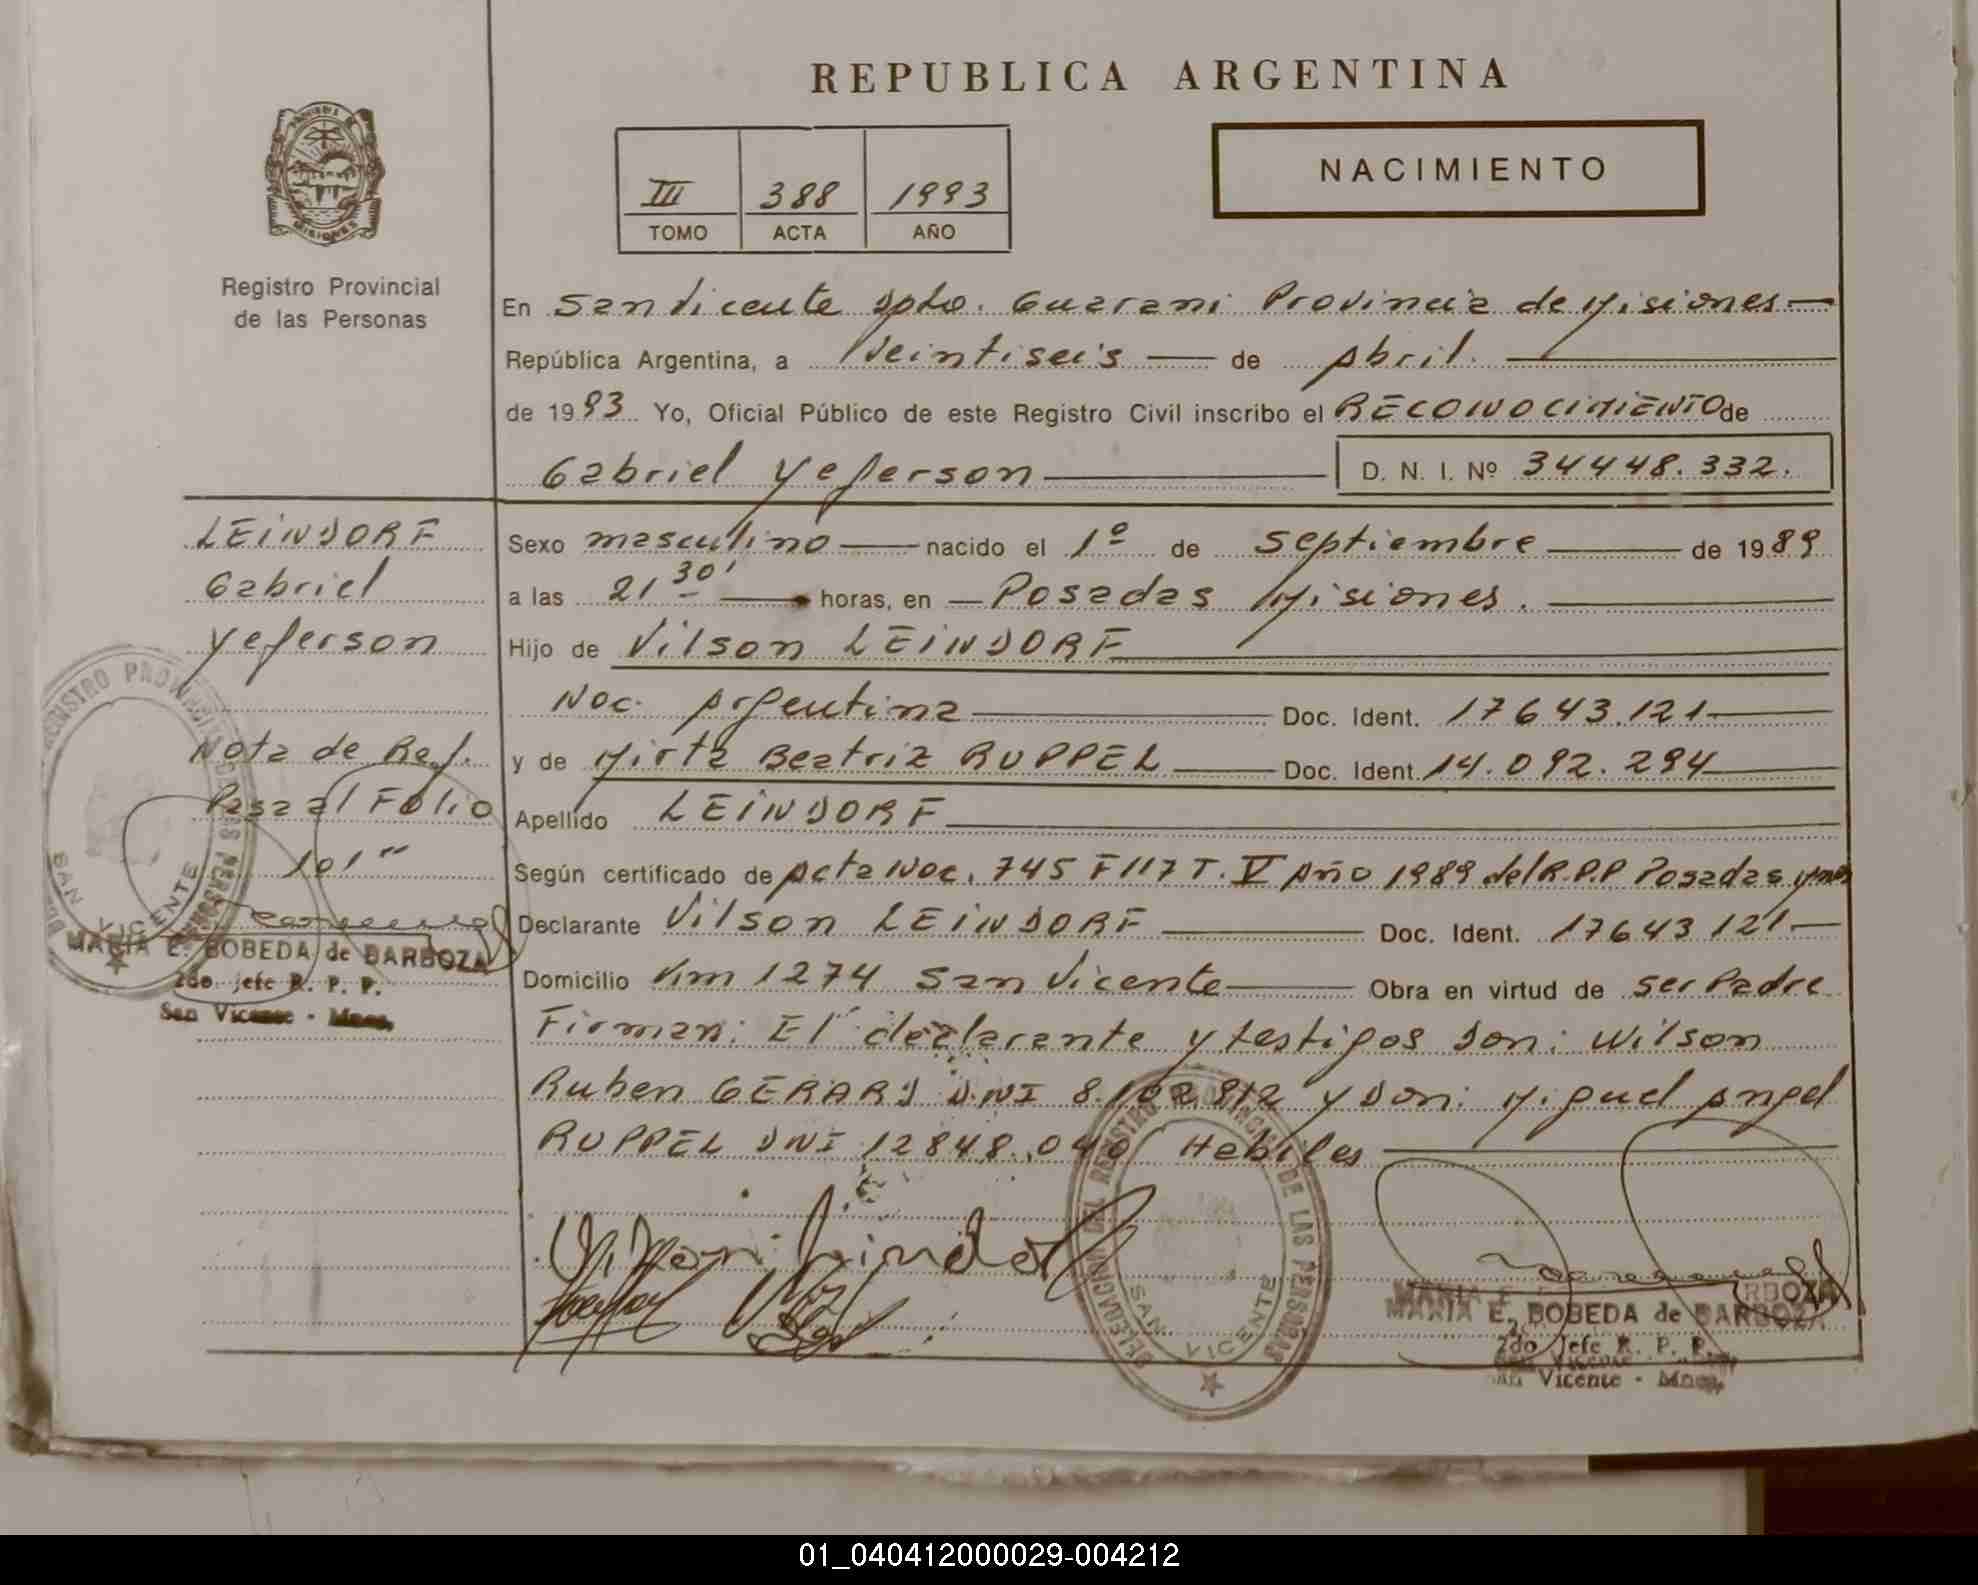 REPUBLICA ARGENTINA
NACIMIENTO
III 388 1993
TOMO ACTA AÑO
Registro Provincial
de las Personas
En San Vicente Dpto. Guarani Provincia de Misiones
República Argentina, a Veintiseis de Abril.
de 1993 Yo, Oficial Público de este Registro Civil inscribo el RECONOCIMIENTO de
Gabriel Yeferson D. N. I. Nº 34448.332.
LEINDORF
Gabriel
Yeferson
Nota de Ref.
Pasa al Folio
101"
MARIA E. BOBEDA de BARBOZA
2do. jefe R. P. P.
San Vicente - Mnes.
Sexo masculino nacido el 1º de Septiembre de 1989
a las 21 30' horas, en Posadas Misiones.
Hijo de Vilson LEINDORF
Nac. Argentina Doc. Ident. 17643.121
y de Mirta Beatriz RUPPEL Doc. Ident. 14.092.294
Apellido LEINDORF
Según certificado de Acta Nac. 745 F117 T. V Año 1989 del R.P.P Posadas Mnes
Declarante Vilson LEINDORF Doc. Ident. 17643 121
Domicilio Km 1274 San Vicente Obra en virtud de ser Padre
Firman: El declarante y testigos Don: Wilson
Ruben GERARD D.NI 8.102.812 y Don: Miguel Angel
RUPPEL DNI 12848.040 Habiles
Vilson Leindorf
DELEGACION DEL REGISTRO PROVINCIAL DE LAS PERSONAS
SAN VICENTE
MARIA E. BOBEDA de BARBOZA
2do Jefe R. P. P.
San Vicente - Mnes.
01_040412000029-004212